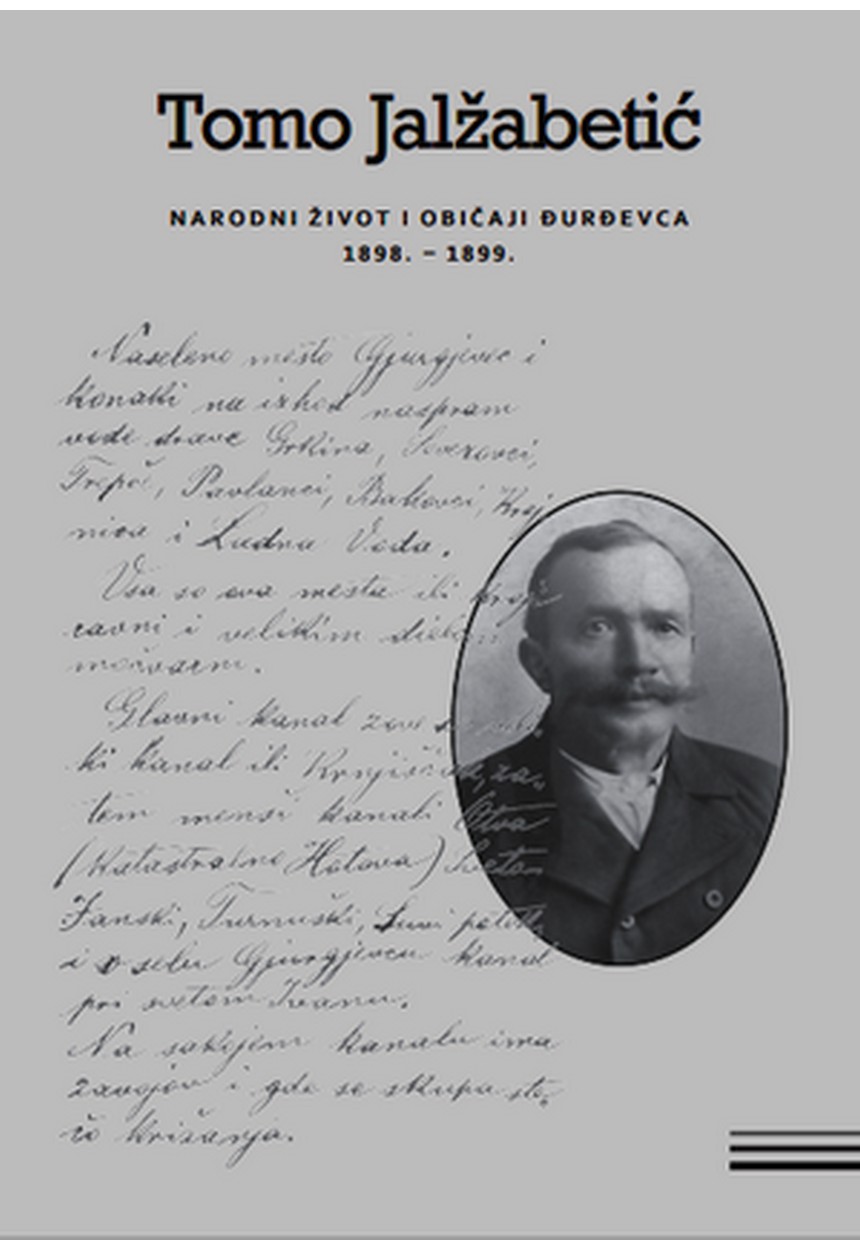 Tomo Jalžabetić
NARODNI ŽIVOT I OBIČAJI ĐURĐEVCA
1898. – 1899.
Naseleno mesto Gjurgjevec i
konaki na izhod naspram
vode drave Grkina, Severovci,
Trepče, Pavlanci, Bakovci, Kraj
nica i Ludna Voda.
Vsa so ova mesta ili kraji
ravni i velikim dielom
močvarni.
Glavni kanal zove se
ki kanal ili za„
tem mensi kanali
(Katastralno Hotova) Svetoi
Janski, Turnuški, potok,
i v selu Gjurgjevcu kanal
pri svetom Ivanu.
Na sakojem kanalu ima
zavojov i gde se skupa sto„
čo križanja.